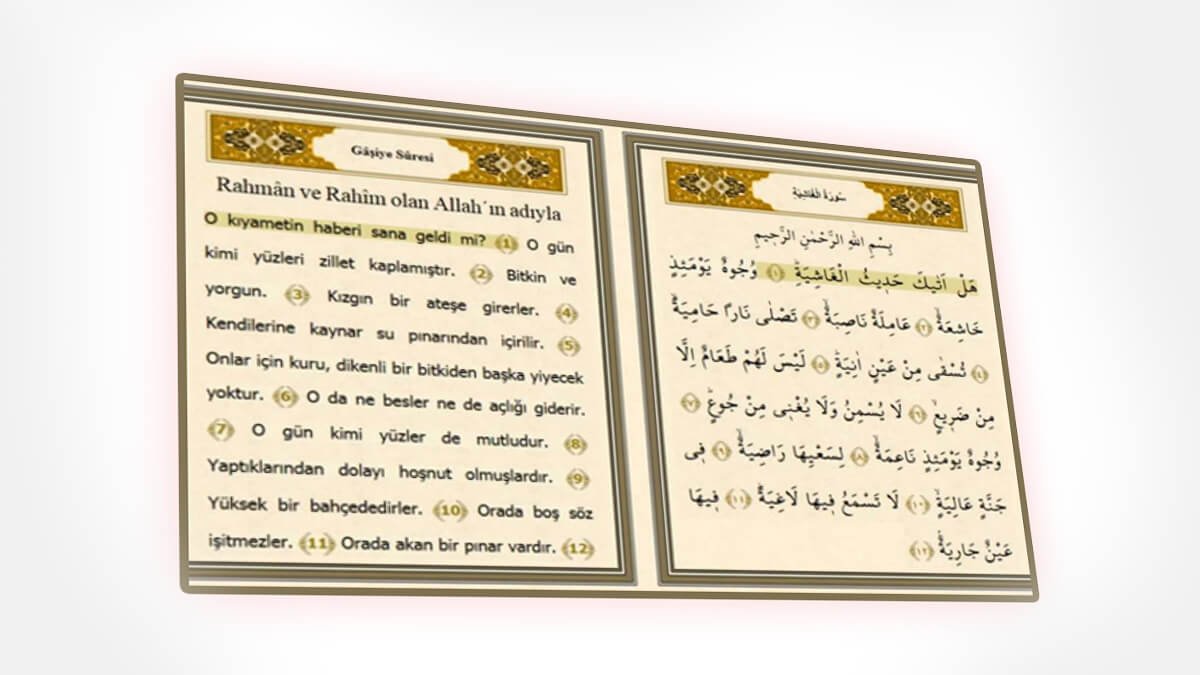 Gâşiye Sûresi
Rahmân ve Rahîm olan Allah´ın adıyla
O kıyametin haberi sana geldi mi? (1) O gün
kimi yüzleri zillet kaplamıştır. (2) Bitkin ve
yorgun. (3) Kızgın bir ateşe girerler. (4)
Kendilerine kaynar su pınarından içirilir. (5)
Onlar için kuru, dikenli bir bitkiden başka yiyecek
yoktur. (6) O da ne besler ne de açlığı giderir.
(7) O gün kimi yüzler de mutludur. (8)
Yaptıklarından dolayı hoşnut olmuşlardır. (9)
Yüksek bir bahçededirler. (10) Orada boş söz
işitmezler. (11) Orada akan bir pınar vardır. (12)
سُورَةُ الْغَاشِيَةِ
بِسْمِ اللهِ الرَّحْمٰنِ الرَّحٖيمِ
هَلْ اَتٰيكَ حَدٖيثُ الْغَاشِيَةِؕ ﴿١﴾ وُجُوهٌ يَوْمَئِذٍ
خَاشِعَةٌۙ ﴿٢﴾ عَامِلَةٌ نَاصِبَةٌۙ ﴿٣﴾ تَصْلٰى نَارًا حَامِيَةًۙ
﴿٤﴾ تُسْقٰى مِنْ عَيْنٍ اٰنِيَةٍؕ ﴿٥﴾ لَيْسَ لَهُمْ طَعَامٌ اِلَّا
مِنْ ضَرٖيعٍۙ ﴿٦﴾ لَا يُسْمِنُ وَلَا يُغْنٖي مِنْ جُوعٍؕ ﴿٧﴾
وُجُوهٌ يَوْمَئِذٍ نَاعِمَةٌۙ ﴿٨﴾ لِسَعْيِهَا رَاضِيَةٌۙ ﴿٩﴾ فٖي
جَنَّةٍ عَالِيَةٍۙ ﴿١٠﴾ لَا تَسْمَعُ فٖيهَا لَاغِيَةًؕ ﴿١١﴾ فٖيهَا
عَيْنٌ جَارِيَةٌۢ ﴿١٢﴾